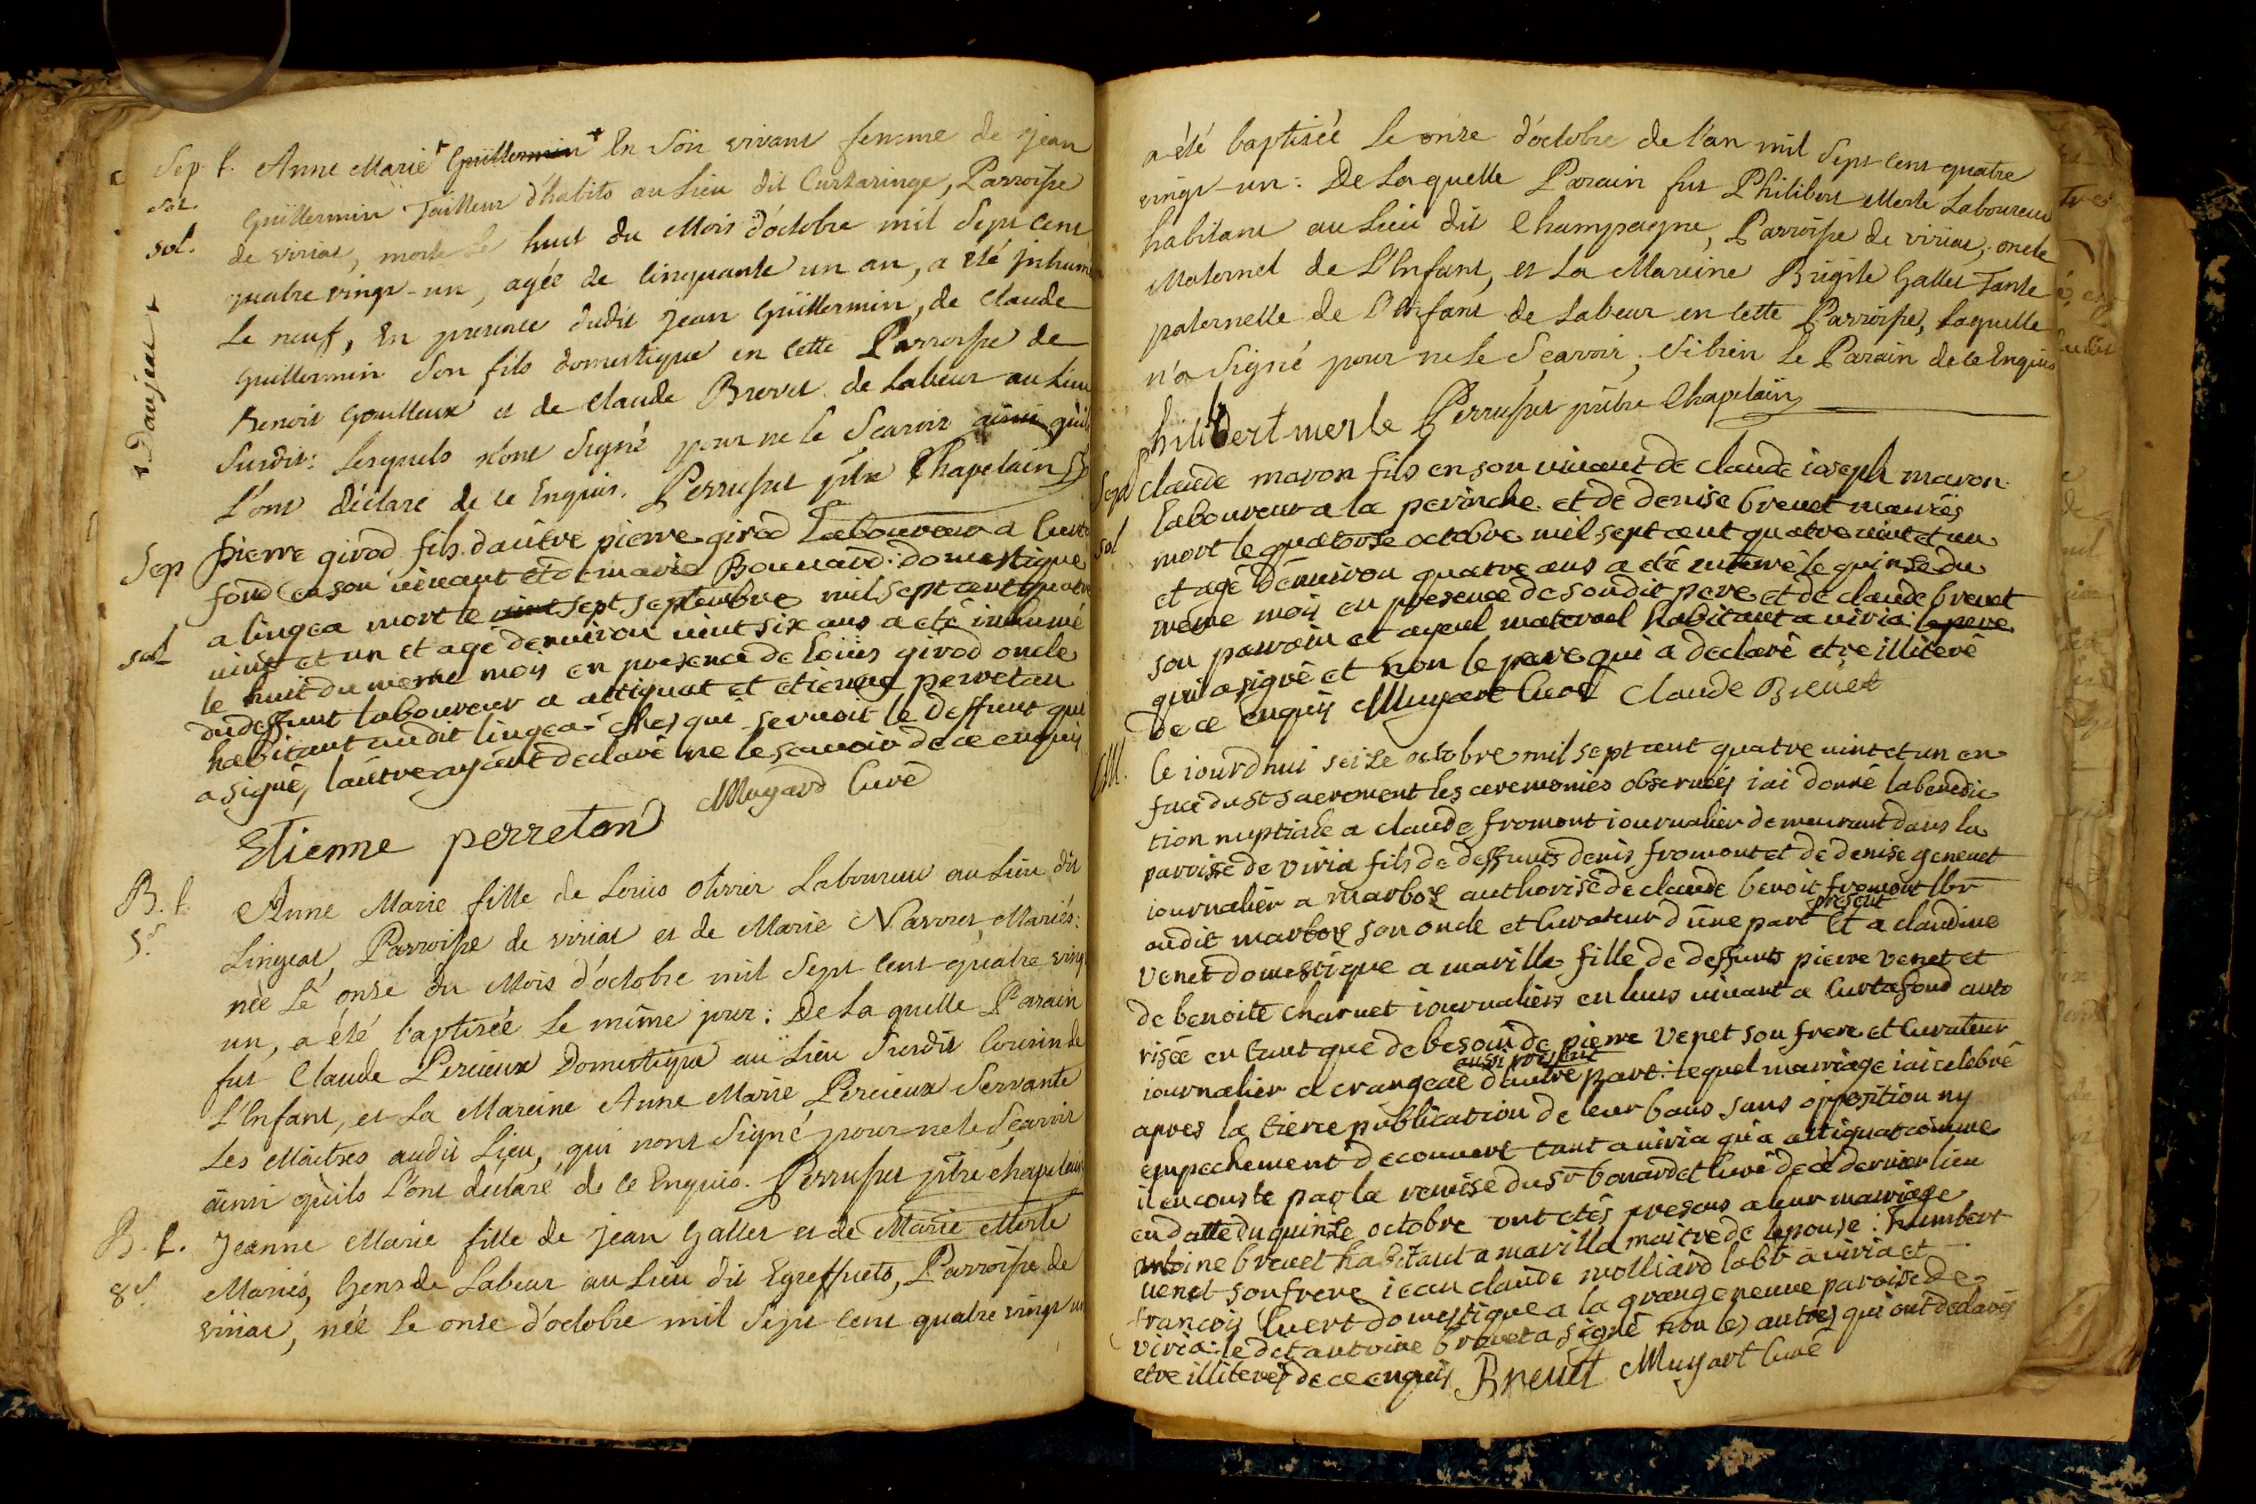 Sep. f. Anne Marie + Guillermin + En Son vivant femme de Jean
sol. Guillermin Tailleur d'habits au Lieu dit Curtaringe, Parroisse
de viriat, morte le huit du Mois d'octobre mil Sept Cent
quatre vingt-un, agée de Cinquante un an, a été Inhumé
Le neuf, En presence dudit Jean Guillermin, de Claude
Guillermin Son fils domestique en Cette Parroisse de
+ Daujat +
Benoit Goulleux et de Claude Brevet de Labeur au Lieu
Susdit: Lesquels n'ont Signé pour ne le Scavoir ainsi qu'ils
L'ont déclaré de ce Enquis. Perruset ptre Chapelain
Sep pierre girod fils d'autre pierre girod Laboureur a Curta
fond en son vivant et de marie Bouvard: domestique
a lingea mort le vint sept septembre mil sept cent quatre
sol vint et un et agé denviron vint six ans a eté inhumé
le huit du meme mois en presence de loüis girod oncle
du deffunt laboureur a attignat et etienne perretan
habitant audit lingea ches qui servoit le deffunt qui
a signé, lautre ayant declaré ne le scavoir de ce enquis
Mugard Curé
Etienne perretan
B. f. Anne Marie fille de Louis Olivier Laboureur au Lieu dit
5e. Lingeat, Parroisse de viriat et de Marie Navarres Mariés:
née Le onse du Mois d'octobre mil Sept Cent quatre ving
un, a été baptisée Le même jour: De Laquelle Parain
fut Claude Percieux Domestique au Lieu Susdit Cousin de
L'Enfant, et La Mareine Anne Marie Percieux Servante
Les Maitres audit Lieu, qui nont Signé pour ne le Sçavoir
ainsi qu'ils L'ont déclaré de ce Enquis. Perruset ptre chapelain
B. f. Jeanne Marie fille de Jean Gallet et de Marie Merle
8e. Mariés, Gens de Labeur au Lieu dit Egreffiets, Parroisse de
viriat, née Le onse d'octobre mil Sept Cent quatre vingt un
a été baptisée Le onse d'octobre de l'an mil Sept Cent quatre
vingt-un: De Laquelle Parain fut Philibert Merle Laboureur
habitant au Lieu dit Champagne, Parroisse de viriat, oncle
Maternel de L'Enfant, et La Mareine Brigitte Gallet Tante
paternelle de L'Enfant de Labeur en Cette Parroisse, Laquelle
n'a Signé pour ne le Sçavoir, Si bien Le Parain de ce Enquis
philibert merle Perruset prêtre Chapelain
Sep claude maron fils en son vivant de claude ioseph maron
laboureur a la perinche et de denise brevet mariés
sol mort le quatorse octobre mil sept cent quatre vint et un
et agé denviron quatre ans a eté enterré le quinse du
même mois en presence de son dit pere et de claude brevet
son parrain et ayeul maternel habitant a viria le pere
qui a signé et non le pere qui a declaré etre illiteré
de ce enquis Mugart Curé Claude Brevet
M. Ce iourdhui seise octobre mil sept cent quatre vint et un en
face du st sacrement les ceremonies observées iai donné la benedic
tion nuptiale a claude fromont iournalier demeurant dans la
paroisse de viria fils de deffunts denis fromont et de denise genevet
iournalier a marbos authorisé de claude benoit fromont lbr
audit marbos son oncle et Curateur d'une part present Et a claudine
venet domestique a maville fille de deffunts pierre venet et
de benoite charvet iournaliers en leurs vivant a Curtafond auto
risée en tant que de besoin de pierre venet son frere et Curateur
iournalier a crangeac aussi present d'autre part: lequel mariage iai celebré
apres la tierce publication de leur bans sans opposition ny
empechement decouvert tant a viria qu'a attignat comme
il en couste par la remise du Sr bonardet Curé de ce dernier lieu
en datte du quinse octobre ont etés presens a leur mariage
antoine brevet habitant a marilla maitre de lepouse: humbert
venet son frere iean claude molliard labr a viria et
francois Cuert domestique a la grange neuve paroisse de
viria: le dt antoine brevet a signé non les autres qui ont declarés
etre illiterés de ce enquis Brevet Mugart Curé